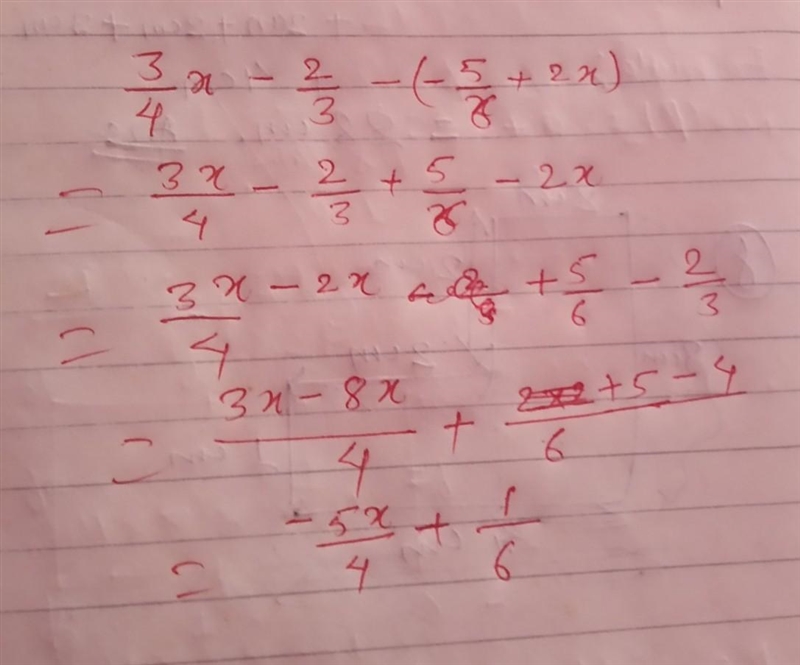 3/4 x - 2/3 - (-5/6 + 2x)
= 3x/4 - 2/3 + 5/6 - 2x
= 3x/4 - 2x + 5/6 - 2/3
= (3x - 8x)/4 + (+5 - 4)/6
= -5x/4 + 1/6